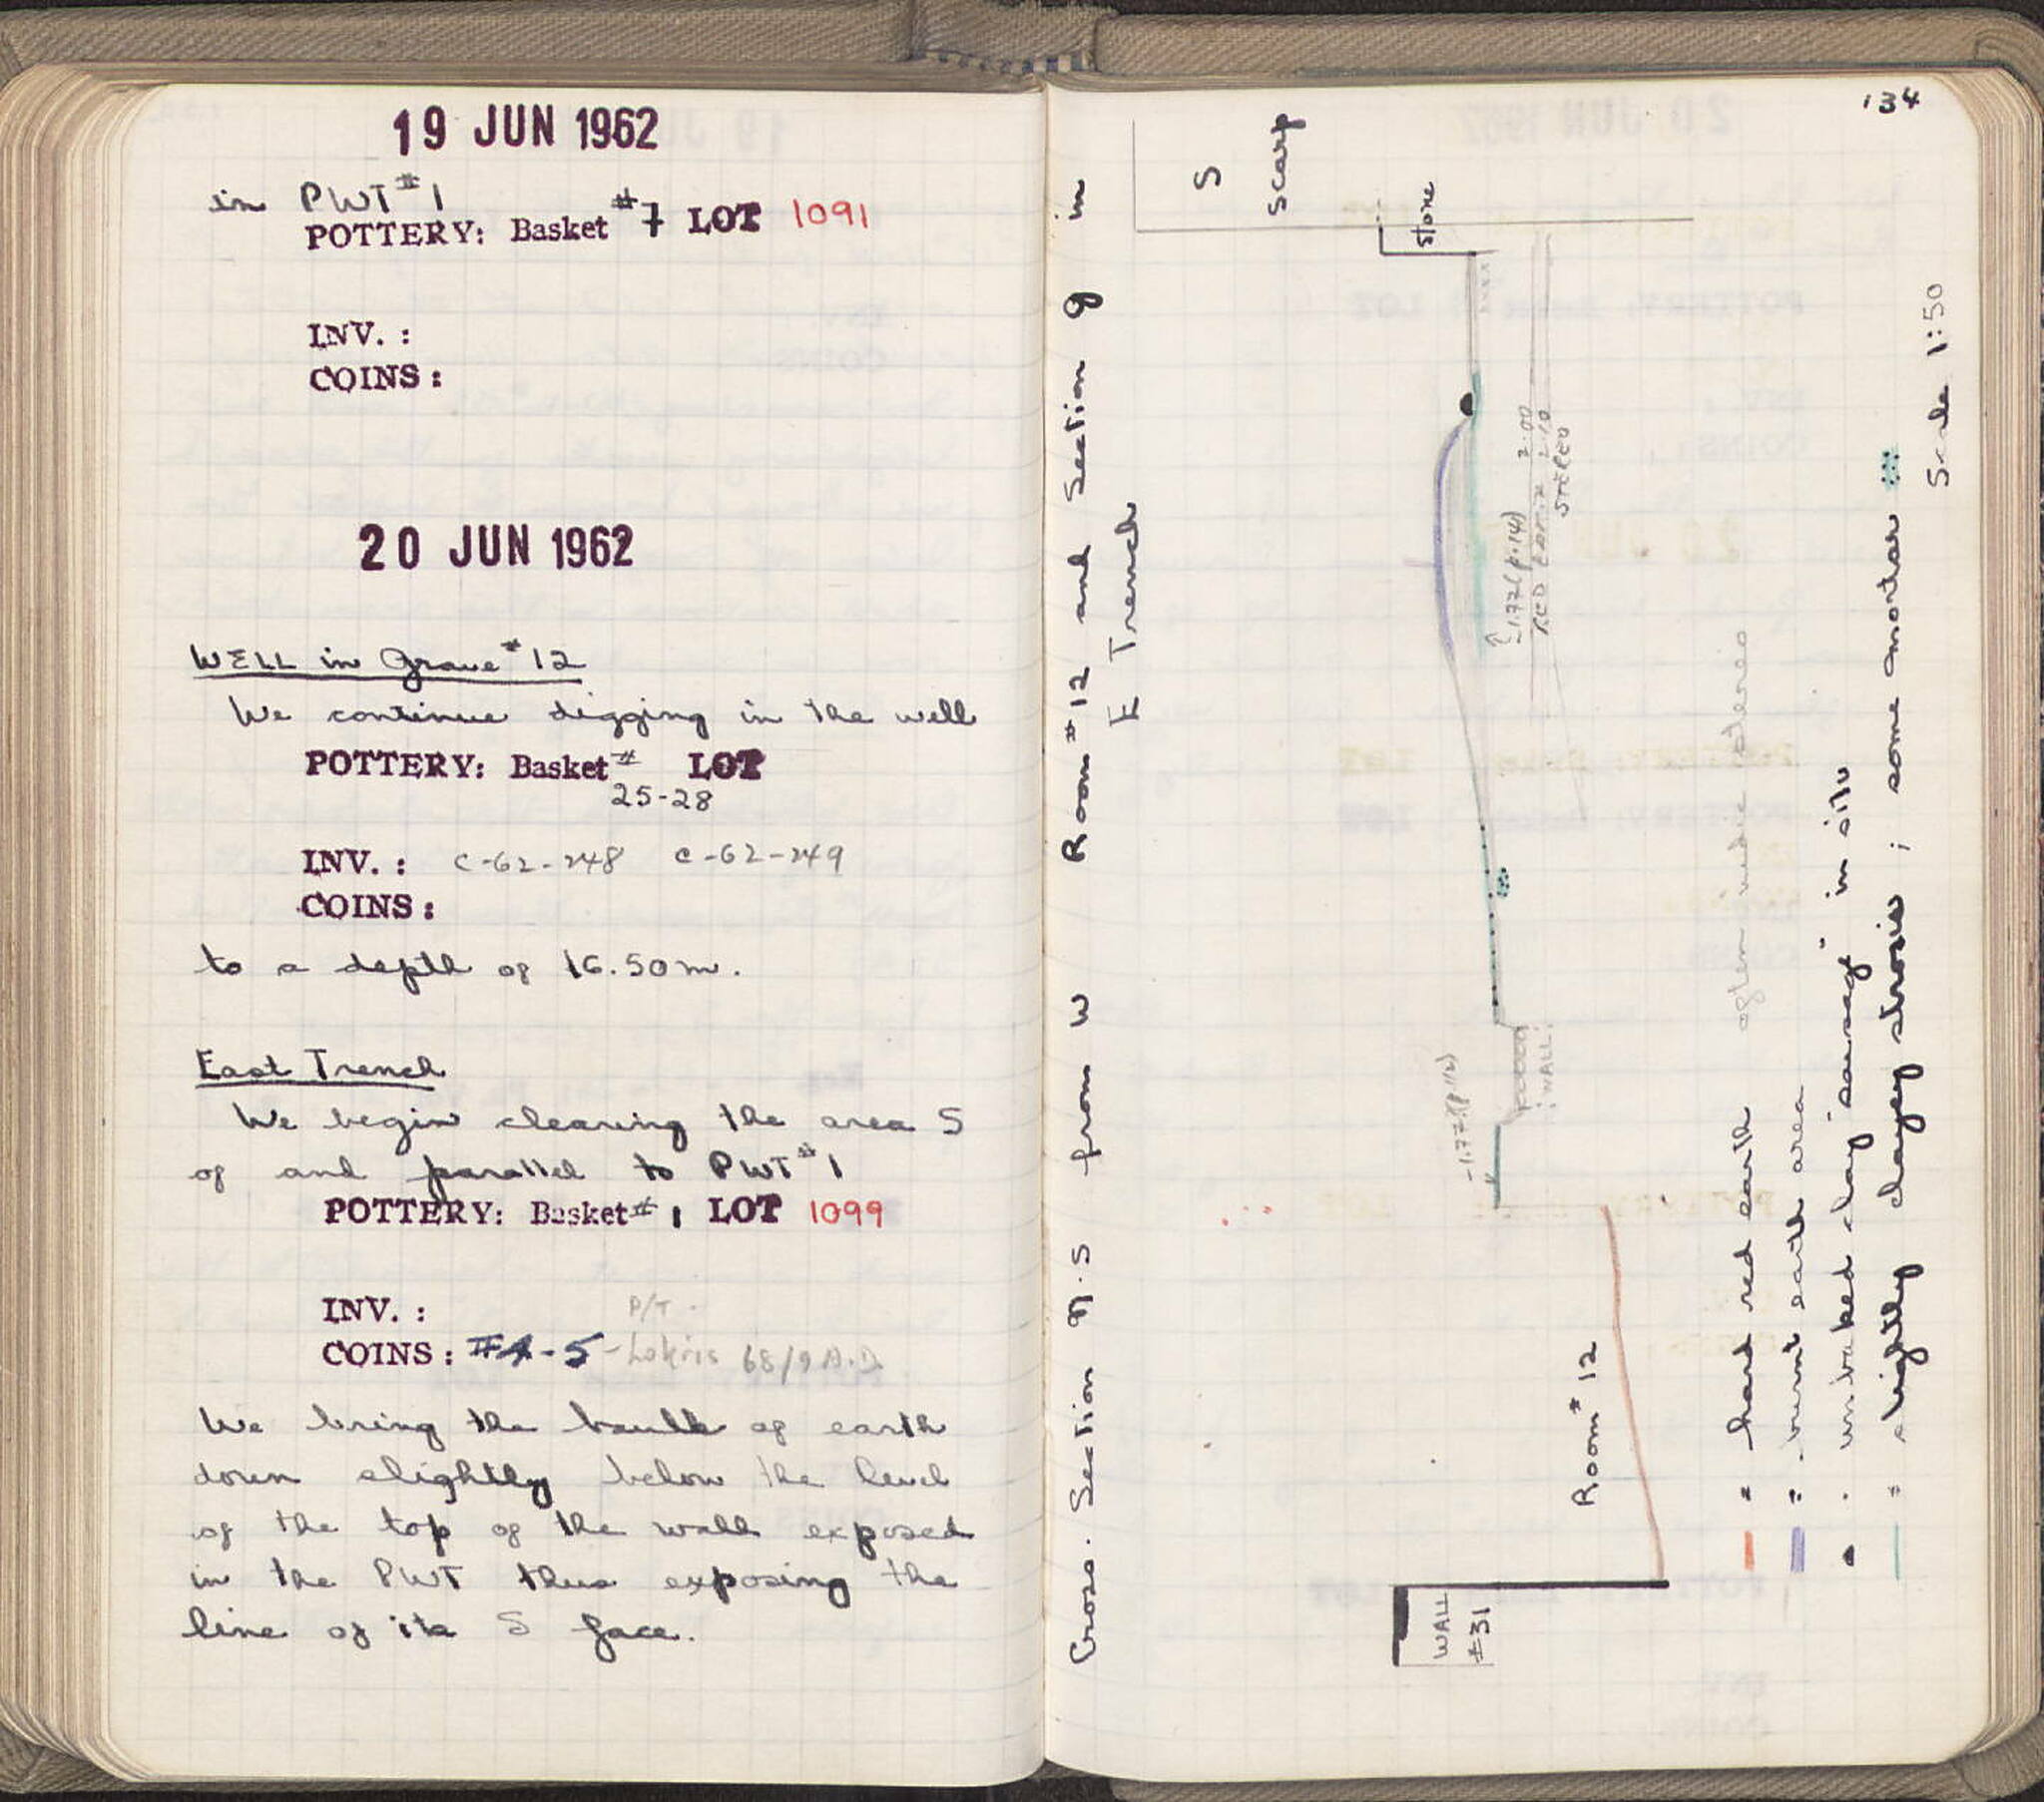 19 JUN 1962
in PWT #1
POTTERY: Basket #7 LOT 1091
INV. :
COINS :
20 JUN 1962
WELL in Grave #12
We continue digging in the well
POTTERY: Basket # LOT
25-28
INV. : C-62-248 C-62-249
COINS :
to a depth of 16.50 m.
East Trench
We begin clearing the area S
of and parallel to PWT #1
POTTERY: Basket # 1 LOT 1099
INV. : P/T -
COINS : #4-5 - Lokris 68/9 A.D.
We bring the baulk of earth
down slightly below the level
of the top of the wall exposed
in the PWT thus exposing the
line of its S face.
134
Cross-Section N-S from W Room #12 and Section 9 in
E Trench
S
Scarp
stone
-1.77 (p.114)
RED 2.00
2.10
WALL
-1.77 (p 112)
Room #12
WALL
#31
= hard red earth
= burnt earth area
- unbaked clay "sausage" in situ
= slightly clayey strosis ; some mortar
Scale 1:50